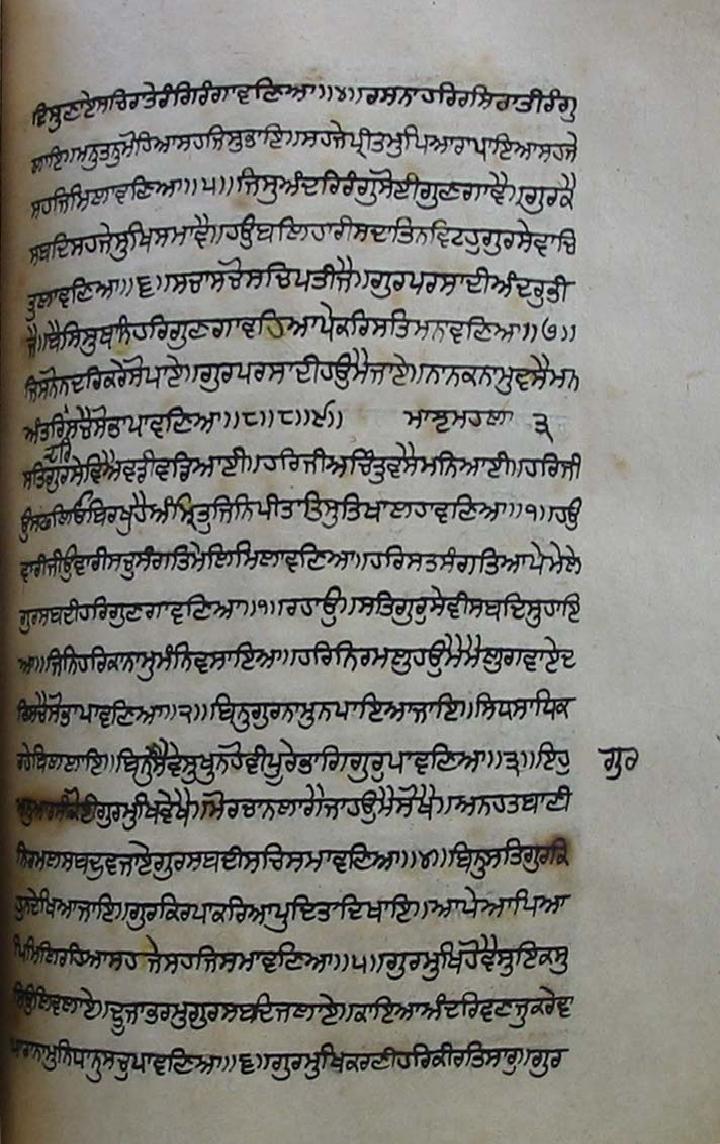 ਵਿਸੁਣਾਏਸਚਿਰਾਤੇਰੰਗਿਰੰਗਾਵਣਿਆ॥੪॥ਰਸਨਾਹਰਿਰਸਿਰਾਤੀਰੰਗੁ
ਲਾਇ॥ਮਨੁਤਨੁਮੋਹਿਆਸਹਜਿਸੁਭਾਇ॥ਸਹਜੇਪ੍ਰੀਤਮੁਪਿਆਰਾਪਾਇਆਸਹਜੇ
ਸਹਜਿਮਿਲਾਵਣਿਆ॥੫॥ਜਿਸੁਅੰਦਰਿਰੰਗੁਸੋਈਗੁਣਗਾਵੈ॥ਗੁਰਕੈ
ਸਬਦਿਸਹਜੇਸੁਖਿਸਮਾਵੈ॥ਹਉਬਲਿਹਾਰੀਸਦਾਤਿਨਵਿਟਹੁਗੁਰਸੇਵਾਚਿ
ਤੁਲਾਵਣਿਆ॥੬॥ਸਚਾਸਚੋਸਚਿਪਤੀਜੈ॥ਗੁਰਪਰਸਾਦੀਅੰਦਰੁਭੀ
ਜੈ॥ਬੈਸਿਸੁਥਾਨਿਹਰਿਗੁਣਗਾਵਹਿਆਪੇਕਰਿਸਤਿਮਨਾਵਣਿਆ॥੭॥
ਜਿਸਨੋਨਦਰਿਕਰੇਸੋਪਾਏ॥ਗੁਰਪਰਸਾਦੀਹਉਮੈਜਾਏ॥ਨਾਨਕਨਾਮੁਵਸੈਮਨ
ਅੰਤਰਿਸਚੈਸੋਭਾਪਾਵਣਿਆ॥੮॥੮॥੯॥ ਮਾਝਮਹਲਾ ੩
ਸਤਿਗੁਰਸੇਵਿਐਵਡੀਵਡਿਆਈ॥ਹਰਿਜੀਅਚਿੰਤੁਵਸੈਮਨਿਆਈ॥ਹਰਿਜੀ
ਉਸਫਲਿਓਬਿਰਖੁਹੈਅੰਮ੍ਰਿਤੁਜਿਨਿਪੀਤਾਤਿਸੁਤਿਖਾਲਹਾਵਣਿਆ॥੧॥ਹਉ
ਵਾਰੀਜੀਉਵਾਰੀਸਚੁਸੰਗਤਿਮੇਲਿਮਿਲਾਵਣਿਆ॥ਹਰਿਸਤਸੰਗਤਿਆਪੇਮੇਲੇ
ਗੁਰਸਬਦੀਹਰਿਗੁਣਗਾਵਣਿਆ॥੧॥ਰਹਾਉ॥ਸਤਿਗੁਰੁਸੇਵੀਸਬਦਿਸੁਹਾਇ
ਆ॥ਜਿਨਿਹਰਿਕਾਨਾਮੁਮੰਨਿਵਸਾਇਆ॥ਹਰਿਨਿਰਮਲੁਹਉਮੈਮੈਲੁਗਵਾਏਦ
ਰਿਸਚੈਸੋਭਾਪਾਵਣਿਆ॥੨॥ਬਿਨੁਗੁਰਨਾਮੁਨਪਾਇਆਜਾਇ॥ਸਿਧਸਾਧਿਕ
ਰਹੇਬਿਲਲਾਇ॥ਬਿਨੁਸੇਵੇਸੁਖੁਨਹੋਵੀਪੂਰੈਭਾਗਿਗੁਰੁਪਾਵਣਿਆ॥੩॥ਇਹੁ ਗੁਰ
ਮਨੁਆਰਸੀਕੋਈਗੁਰਮੁਖਿਵੇਖੈ॥ਮੋਰਚਾਨਲਾਗੈਜਾਹਉਮੈਸੋਖੈ॥ਅਨਹਤਬਾਣੀ
ਨਿਰਮਲਸਬਦੁਵਜਾਏਗੁਰਸਬਦੀਸਚਿਸਮਾਵਣਿਆ॥੪॥ਬਿਨੁਸਤਿਗੁਰਕਿ
ਹੁਨਦੇਖਿਆਜਾਇ॥ਗੁਰਕਿਰਪਾਕਰਿਆਪੁਦਿਤਾਦਿਖਾਇ॥ਆਪੇਆਪਿਆ
ਪਿਮਿਲਿਰਹਿਆਸਹਜੇਸਹਜਿਸਮਾਵਣਿਆ॥੫॥ਗੁਰਮੁਖਿਹੋਵੈਸੁਇਕਸੁ
ਸਿਉਲਿਵਲਾਏ॥ਦੂਜਾਭਰਮੁਗੁਰਸਬਦਿਜਲਾਏ॥ਕਾਇਆਅੰਦਰਿਵਣਜੁਕਰੇਵਾ
ਪਾਰਾਨਾਮੁਨਿਧਾਨੁਸਚੁਪਾਵਣਿਆ॥੬॥ਗੁਰਮੁਖਿਕਰਣੀਹਰਿਕੀਰਤਿਸਾਰੁ॥ਗੁਰ